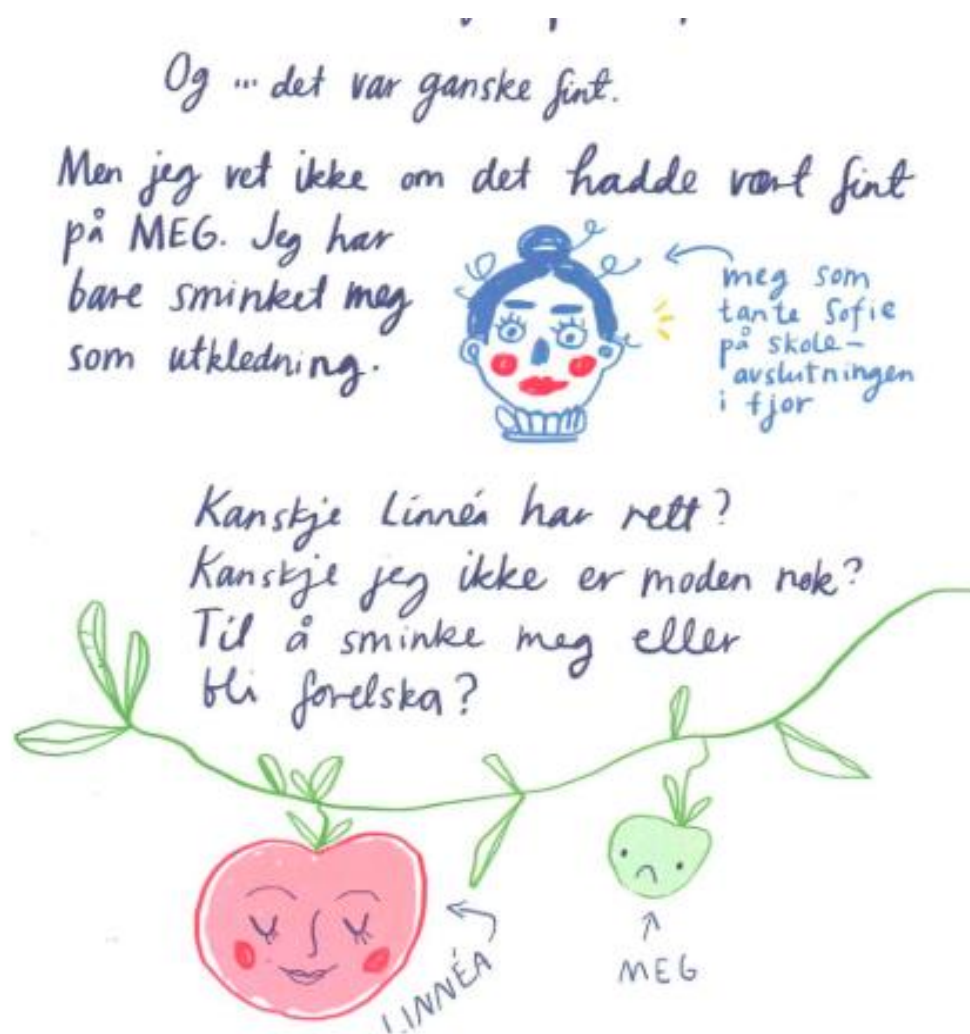 Og ... det var ganske fint.
Men jeg vet ikke om det hadde vært fint
på MEG. Jeg har
bare sminket meg
som utkledning.
meg som
tante Sofie
på skole-
avslutningen
i fjor
Kanskje Linnéa har rett?
Kanskje jeg ikke er moden nok?
Til å sminke meg eller
bli forelska?
LINNÉA
MEG